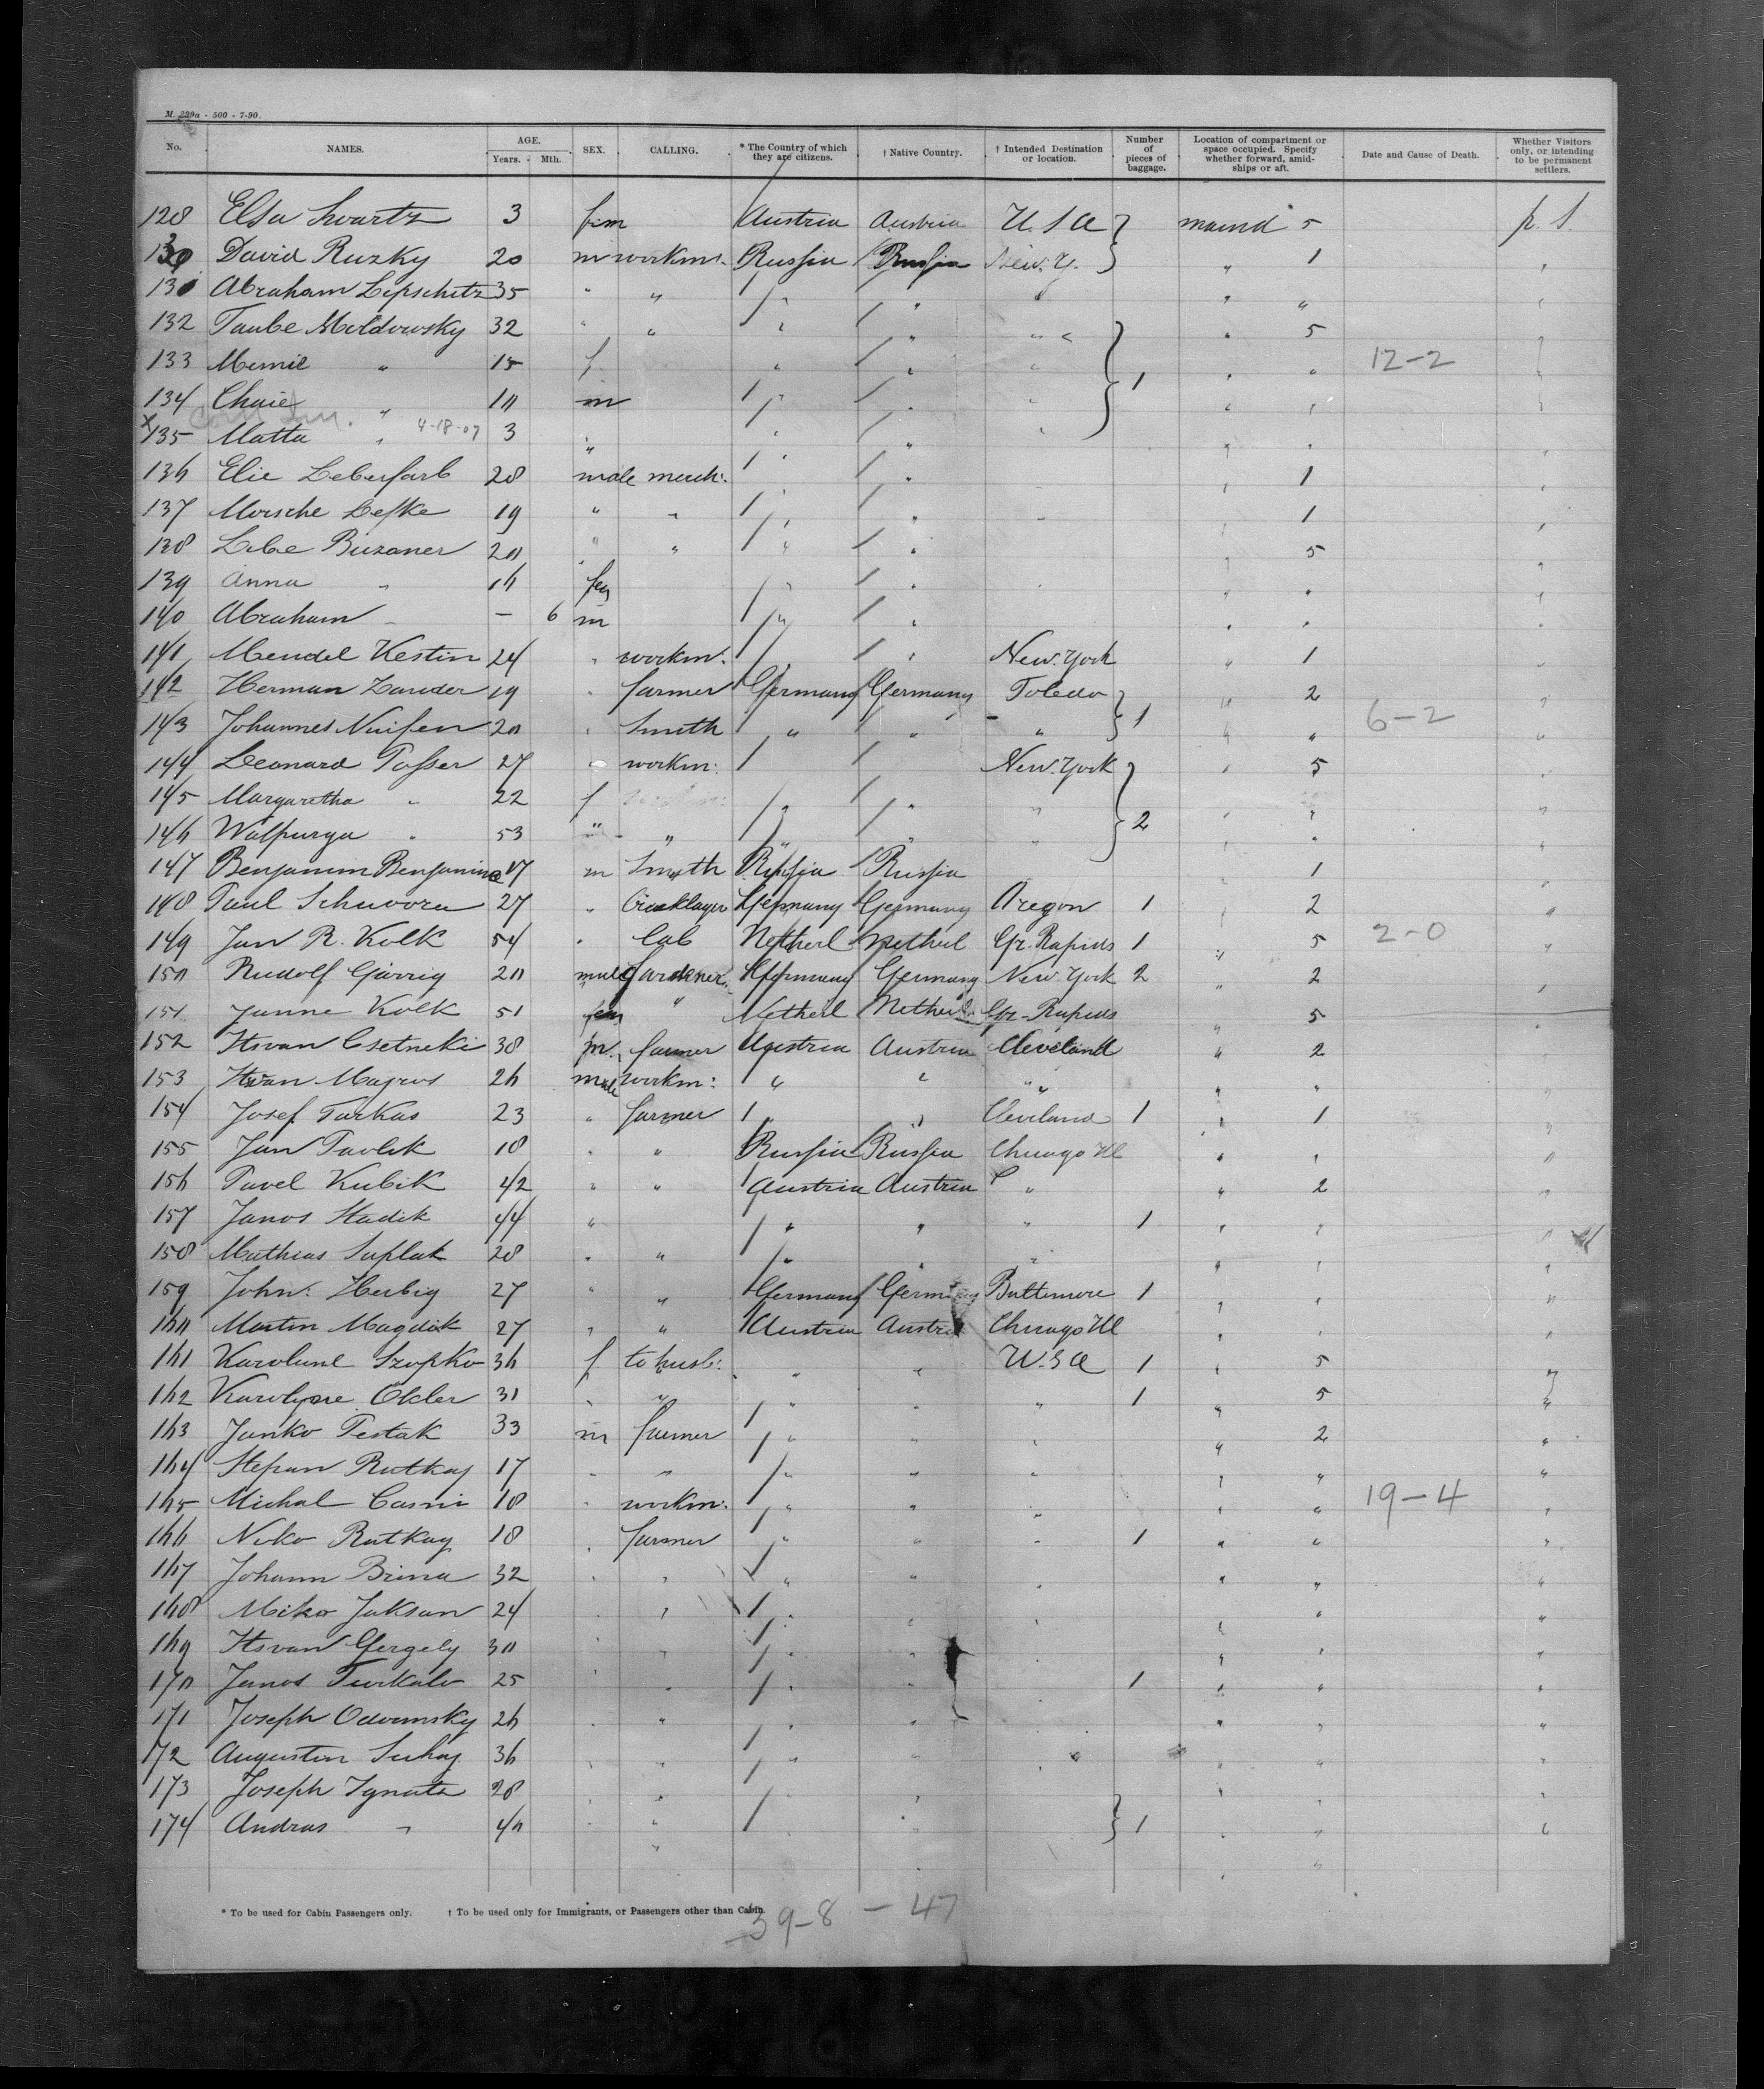 M. 229a - 500 - 7-90.
No. NAMES. AGE. Years. Mth. SEX. CALLING. * The Country of which they are citizens. † Native Country. † Intended Destination or location. Number of pieces of baggage. Location of compartment or space occupied. Specify whether forward, amidships or aft. Date and Cause of Death. Whether Visitors only, or intending to be permanent settlers.
128 Elsa Swartz 3 fem Austria Austria U.S.A } 5 p. S.
130 David Ruzky 20 m workm. Russia Russia New. Y. } " 1 "
131 Abraham Lipschitz 35 " " " " " " "
132 Taube Moldowsky 32 " " " " " " 5
133 " 15 f " " " " " 12-2
134 Chaie " 10 m " " " 1 " "
x 135 Matta " 4-18-07 3 " " " " " "
136 Elie Leberfarb 28 male merch: " " " 1 "
137 Morsche Lefke 19 " " " " " " 1 "
138 Libe Buzaner 20 " " " " " 5 "
139 Anna " 16 fem " " " " "
140 Abraham " — 6 m " " " " "
141 Mendel Kestin 24 " workm: " " New. York " 1 "
142 Herman Zander 19 " farmer Germany Germany Toledo } " 2 "
143 Johannes 20 " Smith " " " } 1 " " 6-2 "
144 Leonard 27 " workm: New. York } " 5
145 Margaretha " 22 f " " " " " "
146 Walpurga " 53 " " " " " } 2 " " "
147 Benjamin 17 m Smith Russia Russia 1 "
148 Paul Schuvora 27 " bricklayer Germany Germany Oregon 1 " 2 "
149 Jan R. Kolk 54 " Lab Netherl Netherl Gr. Rapids 1 " 5 2-0 "
150 Rudolf Görrig 20 male gardener Germany Germany New. York 2 " 2 "
151 Janne Kolk 51 fem " Netherl Netherl Gr. Rapids " 5 "
152 Itsvan Csetneki 38 m. farmer Austria Austria Cleveland " 2
153 Itsvan 26 male workm: " " " " " "
154 Josef Farkas 23 " farmer " " Cleveland 1 " 1 "
155 Jan Pavlik 18 " " Russia Russia Chicago Ill " " "
156 Pavel Kubik 42 " " Austria Austria " " 2 "
157 Janos Hadik 44 " " " " 1 " " "
158 Mathias Suplak 28 " " " " " " " "
159 John: Herbig 27 " " Germany Germany Baltimore 1 " " "
160 Martin Magdik 27 " " Austria Austria Chicago Ill " " "
161 Karoline Szopko 36 f to husb: " " U.S.A 1 " 5 "
162 Karolyne Okler 31 " " " " " 1 " 5 "
163 Janko Pestak 33 m farmer " " " " 2 "
164 Stepan Rutkay 17 " " " " " " " "
165 Michal 18 " workm: " " " " " 19-4 "
166 Rutkay 18 " farmer " " " 1 " " "
167 Johann Brina 32 " " " " " " " "
168 Miko Jaksan 24 " " " " " " "
169 Itsvan Gergely 30 " " " " " " "
170 Janos 25 " " " " 1 " " "
171 Joseph 26 " " " " " " " "
172 Augustin Suhay 36 " " " " " " " "
173 Joseph Ignata 28 " " " " " "
174 Andras " 40 " " " " } 1 " " "
* To be used for Cabin Passengers only. † To be used only for Immigrants, or Passengers other than Cabin.
39-8 — 47